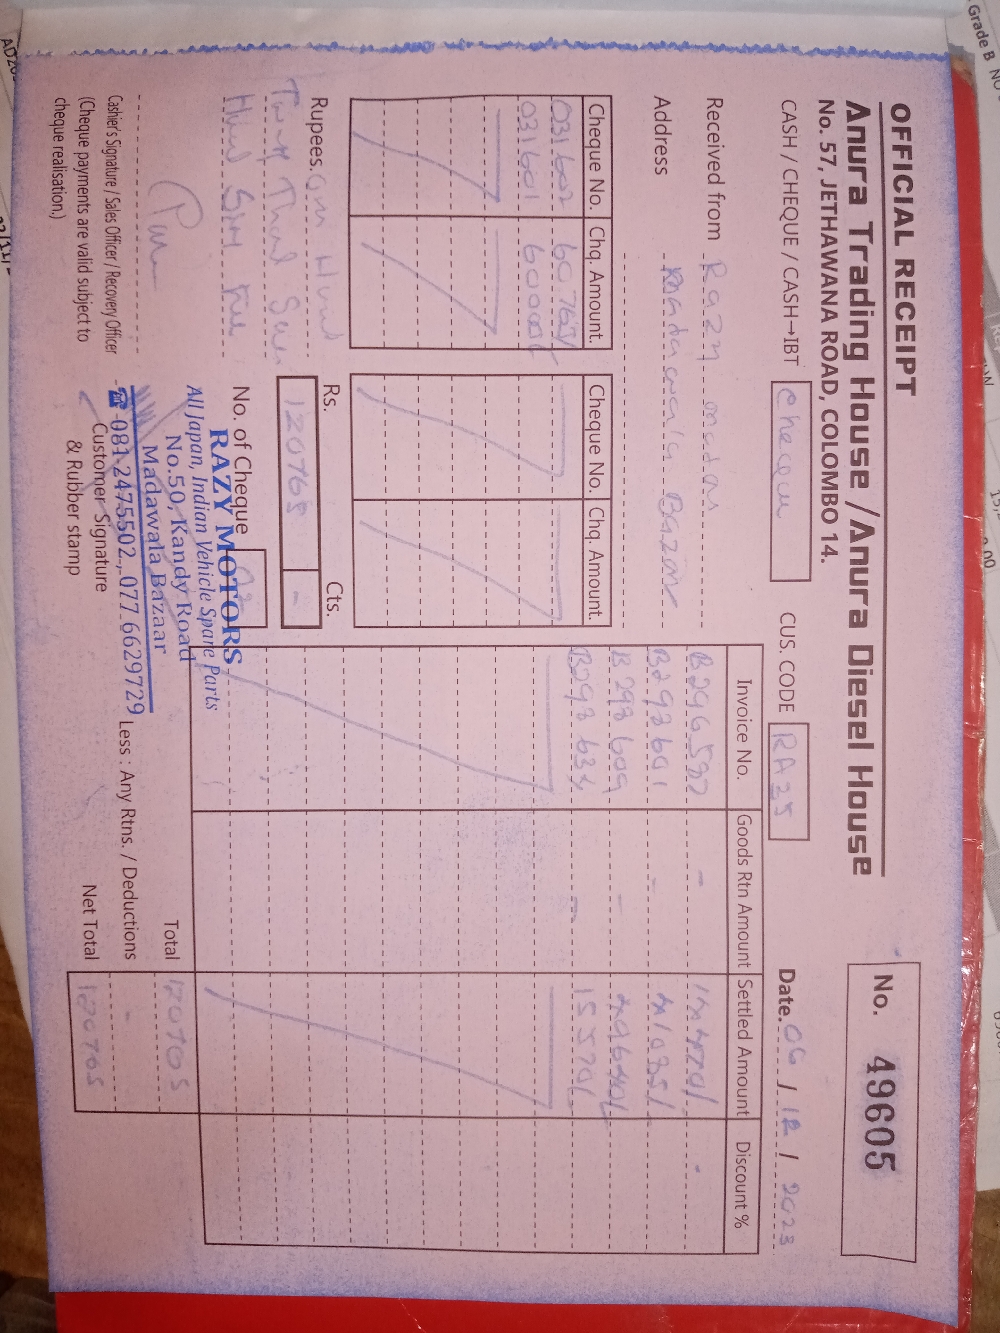 OFFICIAL RECEIPT
Anura Trading House / Anura Diesel House
No. 57, JETHAWANA ROAD, COLOMBO 14.
No. 49605
CASH / CHEQUE / CASH→IBT
CUS. CODE RA35
Date. 06 / 12 / 2023
Received from Razy
Address Madawala Bazar
Cheque No. Chq. Amount. Cheque No. Chq. Amount.
031602 60765/
031601 60000/
Invoice No. Goods Rtn Amount Settled Amount Discount %
B293601 -
B293609 -
B293633 - 15570/
Rupees.
Rs. Cts.
120765 -
No. of Cheque
RAZY MOTORS
All Japan, Indian Vehicle Spare Parts
No.50, Kandy Road
Madawala Bazaar
☎ 081 2475502, 077 6629729
Total 120765
Less : Any Rtns. / Deductions -
Net Total 120765
Cashier's Signature / Sales Officer / Recovery Officer
(Cheque payments are valid subject to
cheque realisation.)
Customer Signature
& Rubber stamp
Grade B